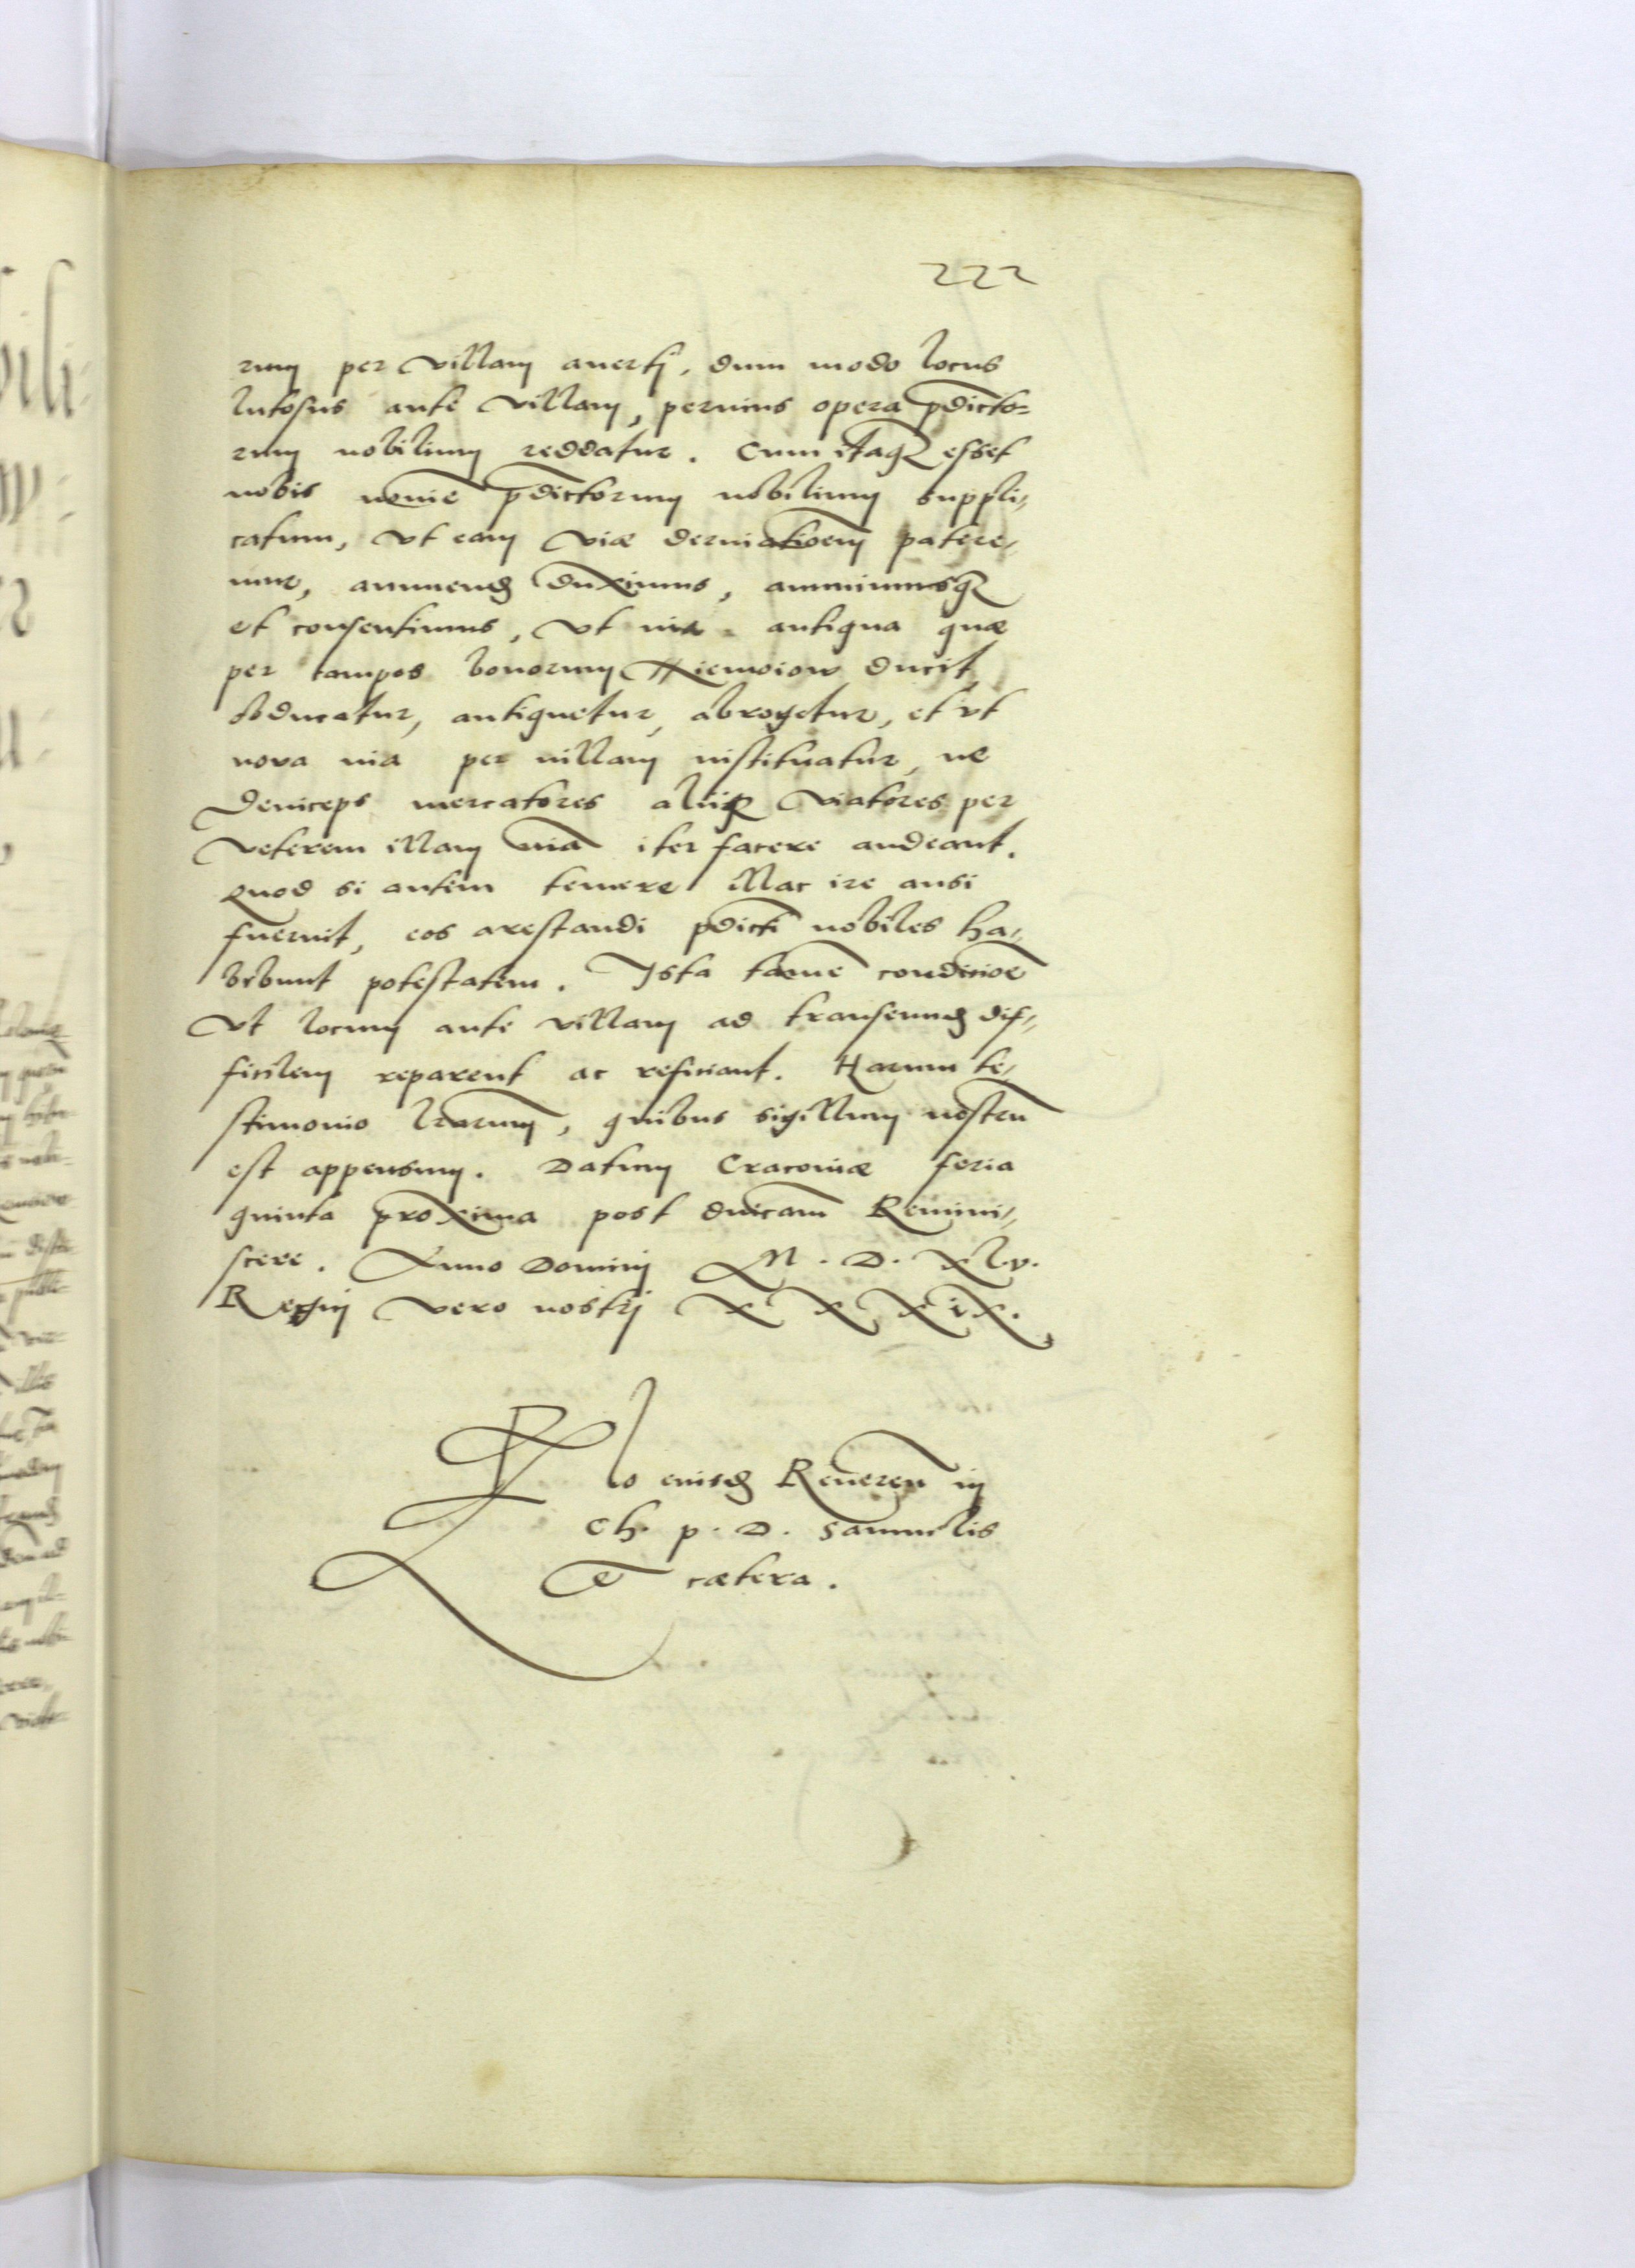 222
rum per villam auertj, dum modo locus
lutosus ante villam, peruius opera p̄dicto-
rum nobilium reddatur. Cum itaqꝫ esset
nobis noīe p̄dictorum nobilium suppli-
catum, vt eam viæ deriuatioēm patere-
mur, annuendꝫ duximus, annuimusqꝫ
et consentimus, vt via antiqua quæ
per campos bonorum Niemoiow ducit,
obducatur, antiquetur, abrogetur, et vt
nova via per villam instituatur, ne
deinceps mercatores aliiqꝫ viatores per
veterem illam viā iter facere audeant.
Quod si autem temere illac ire ausi
fuerint, eos arestandi p̄dicti nobiles ha-
bebunt potestatem. Ista tamē conditioē
Vt locum ante villam ad transeundꝫ dif-
ficilem reparent ac reficiant. Harum te-
stimonio lr̄arum, quibus sigillum nostrū
est appensum. Datum Cracouiæ feria
quinta proxima post dn̄icam Remini-
scere. Anno Dominj M. D. xl.v.
Regnj vero nostrj XXXIX.
Rlo eiusdꝫ Reueren̄ in
Ch. p. D. Samuelis
Et cætera.